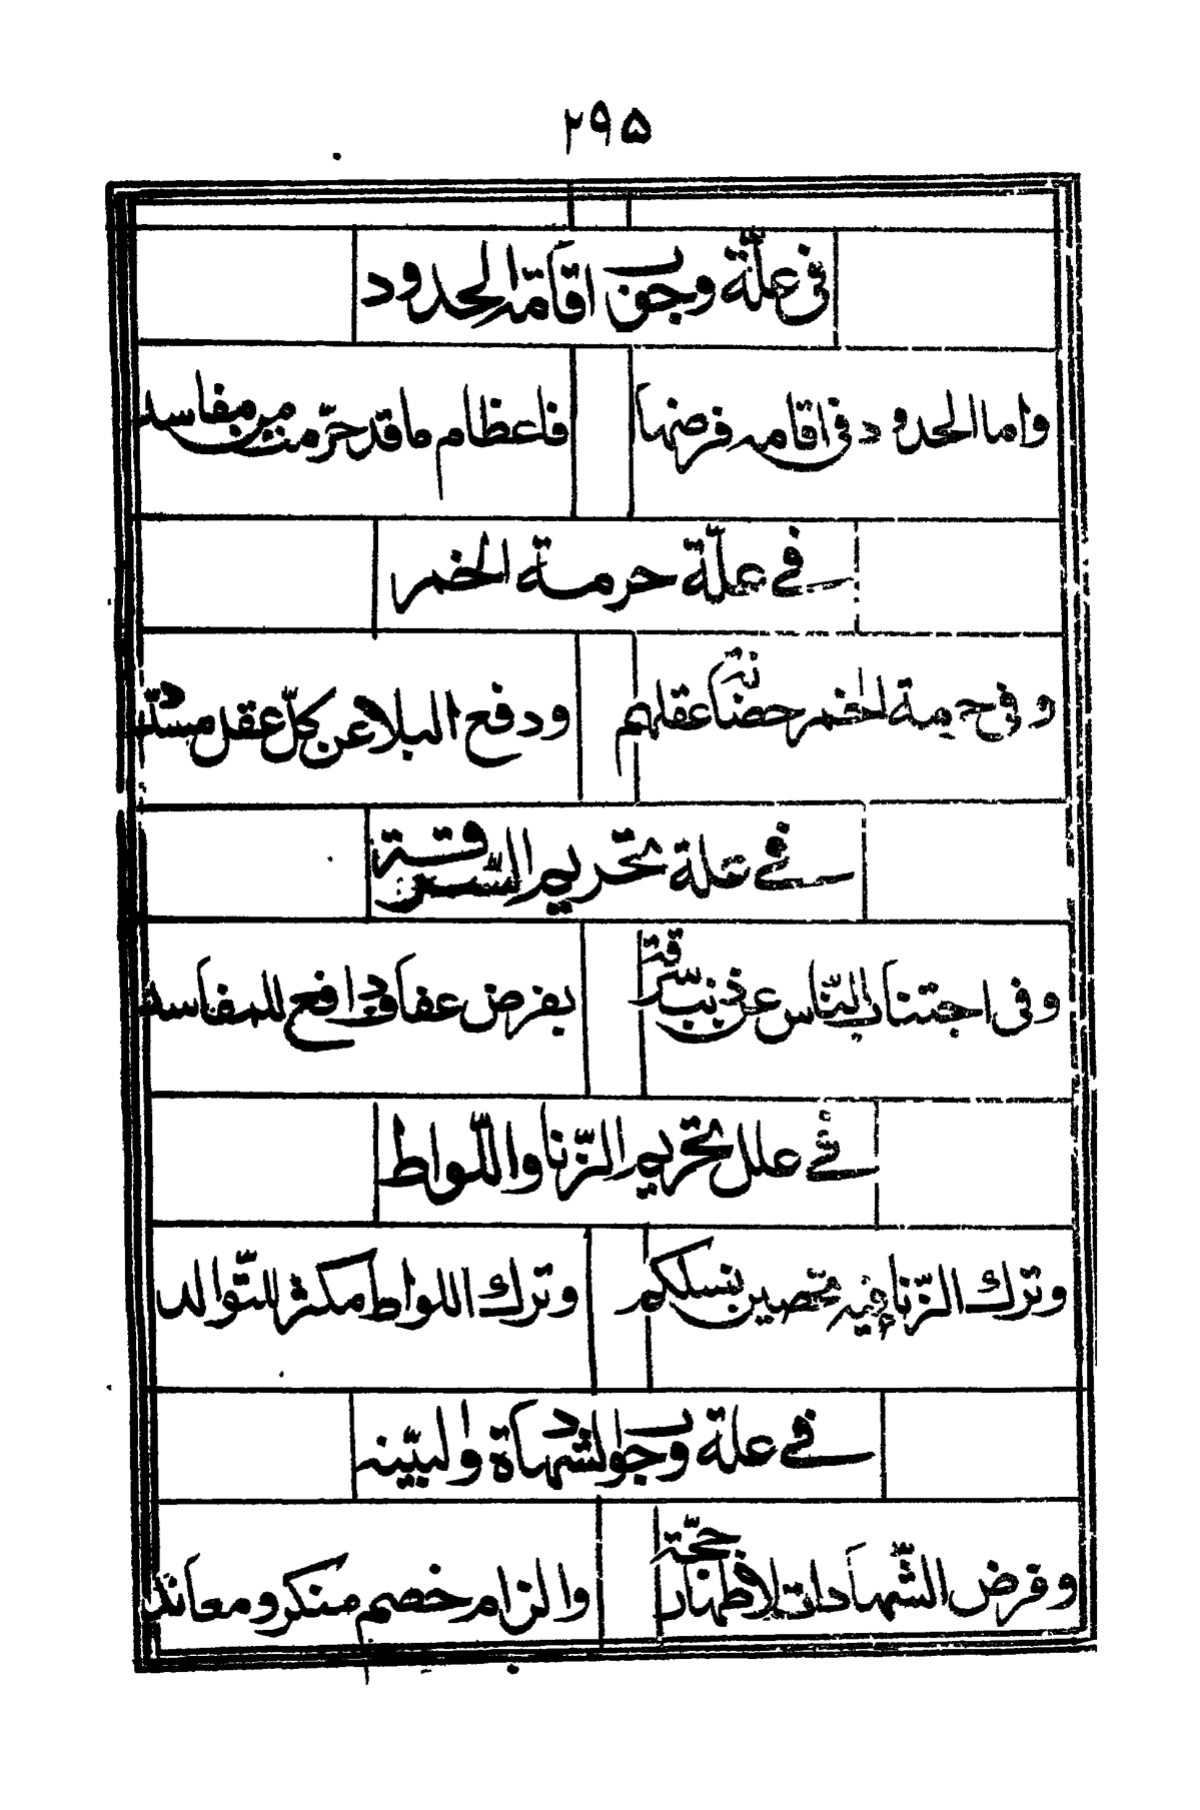 ۲۹۵
فی علّة وجوب اقامة الحدود
واما الحدود فی اقامه فرضها
فاعظام ما قد حرّمت من مفاسد
فی علّة حرمة الخمر
و فی حرمة الخمر عقلهم
ودفع البلا عن کلّ عقل
فی علة تحریم السّرقة
وفی اجتناب النّاس عن ذنب سرقة
بفرض عفاف دافع للمفاسد
فی علل تحریم الزّنا واللّواط
وترك الزّنا فیه بنسلکم
وترك اللواط مکثر للتّوالد
فی علة وجوب الشهادة والبیّنه
وفرض الشّهادات لاظهار حجّة
والزام خصم منکر ومعاند